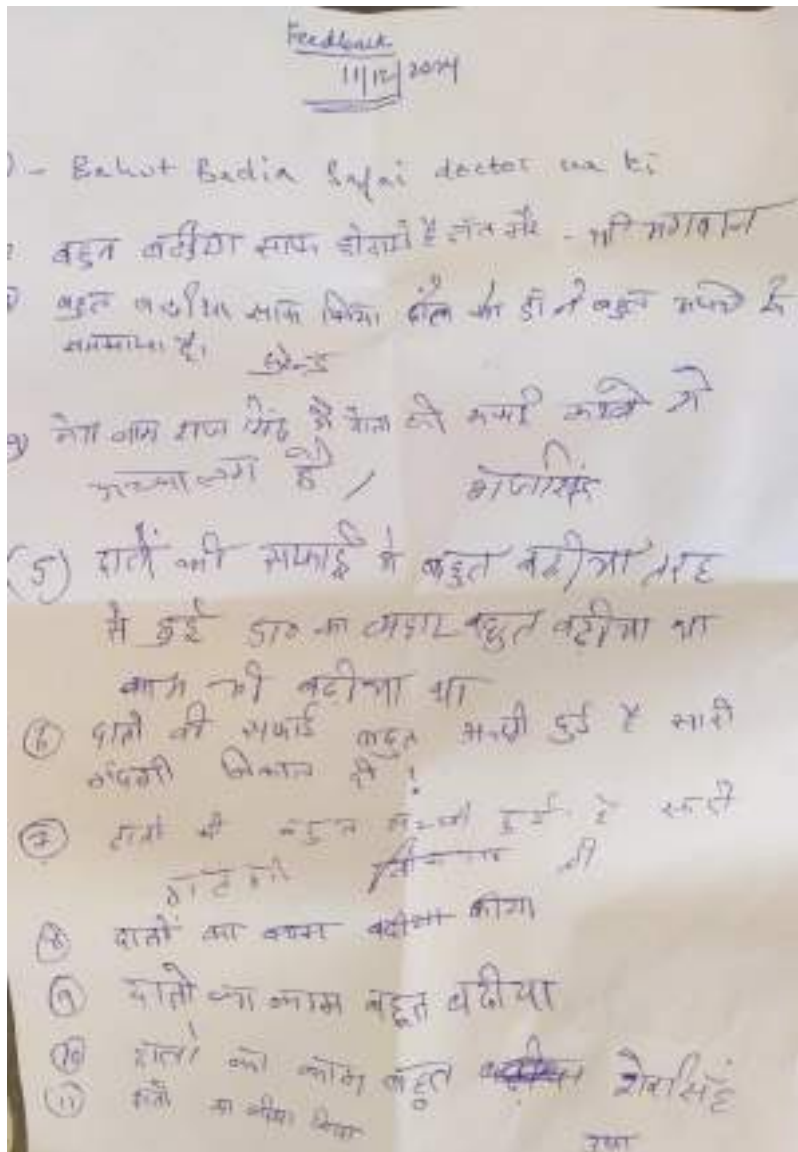 Feedback
11/12/2024
- Bahut Badia Safai doctor ki
बहुत बढीया साफ होगये है दांत मेरे - श्री भगवान
बहुत बढीया साफ किया दाँत को डॉ ने बहुत अच्छे से
समझाया है।
मेरा नाम राज सिंह है दातो की सफाई करवाने से
अच्छा लगा है /
(5) दातों की सफाई में बहुत बढीया तरह
से हुई डा० का व्यहार बहुत बढीया था
काम भी बढीया था
(6) दातो की सफाई बहुत अच्छी हुई है सारी
गंदगी निकाल दी !
(7) दातो की बहुत अच्छी हुई है सारी
गंदगी निकाल दी
(8) दातों का काम बढीया कीया
(9) दातो का काम बहूत बढीया
(10) दातो का काम बहुत बढीया शेरसिंह
(11) दातो का किया